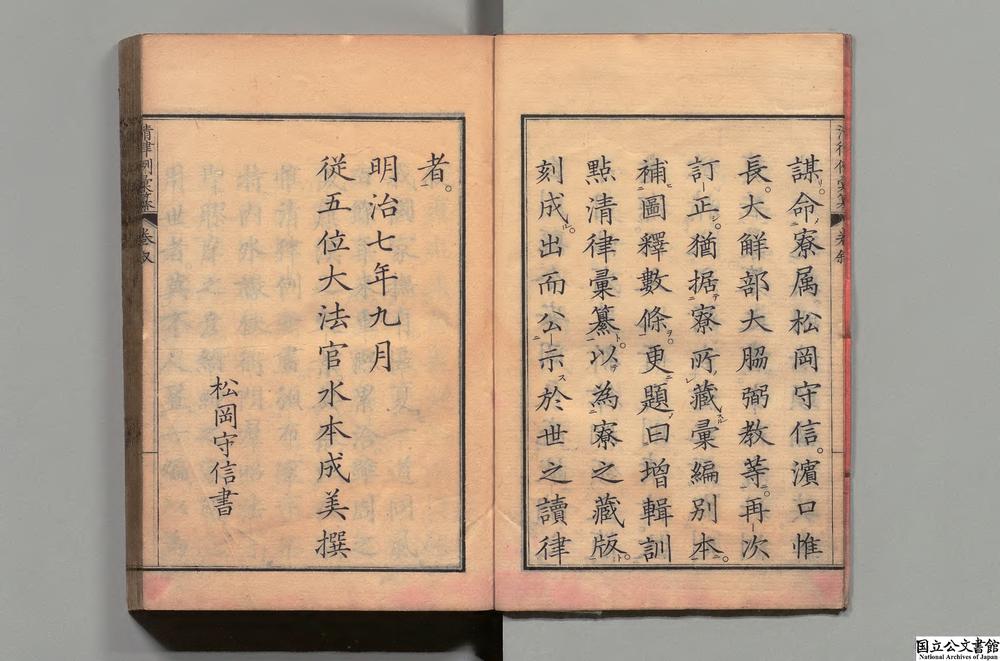 謀命寮属松岡守信。濱口惟
長。大解部大脇弼教等。再次
訂正。猶据寮所藏彙編別本。
補圖釋數條。更題曰增輯訓
點清律彙纂。以為寮之藏版。
刻成。出而公示於世之讀律
者。
明治七年九月
従五位大法官水本成美撰
松岡守信書
国立公文書館
National Archives of Japan